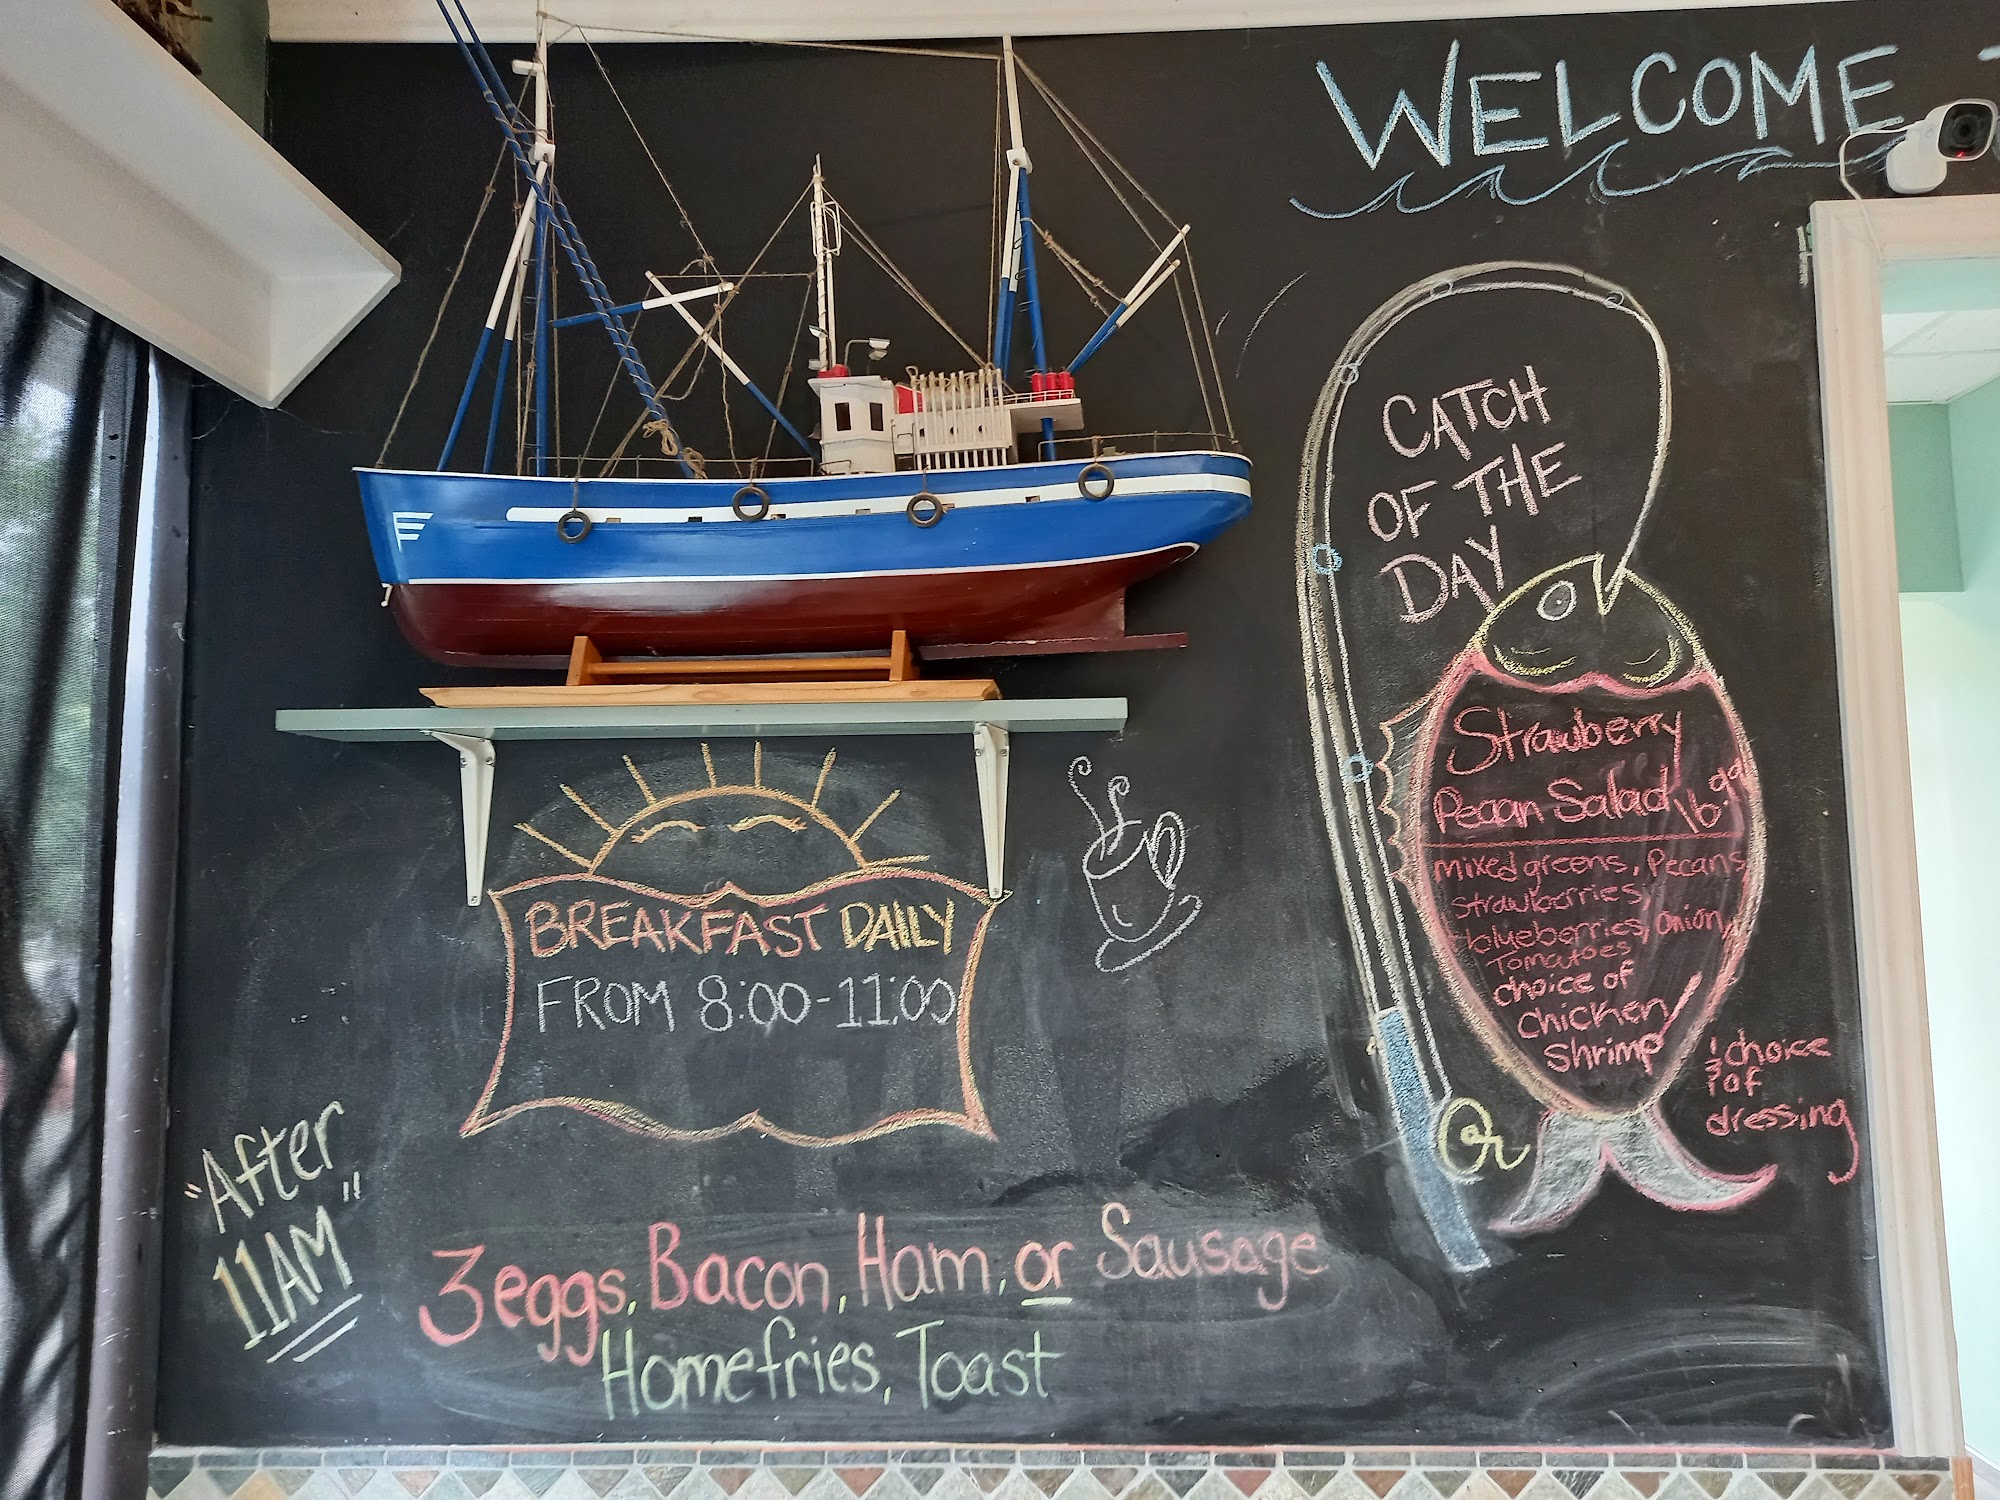 WELCOME
CATCH
OF THE
DAY
Strawberry
Pecan Salad 16.99
mixed greens, Pecans
strawberries,
blueberries, onion,
Tomatoes
choice of
chicken/
shrimp
choice
of
dressing
Or
BREAKFAST DAILY
FROM 8:00-11:00
"After
11AM"
3 eggs, Bacon, Ham, or Sausage
Homefries, Toast